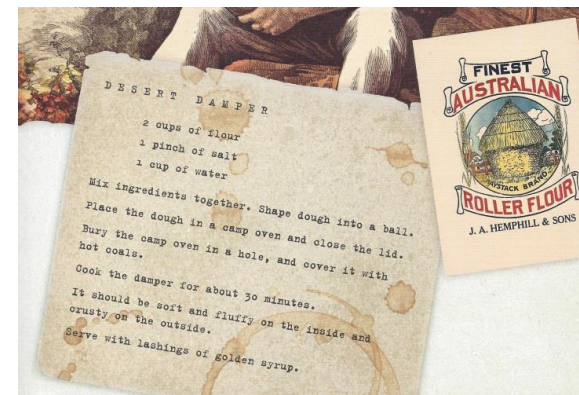 DESERT DAMPER
2 cups of flour
1 pinch of salt
1 cup of water
Mix ingredients together. Shape dough into a ball.
Place the dough in a camp oven and close the lid.
Bury the camp oven in a hole, and cover it with
hot coals.
Cook the damper for about 30 minutes.
It should be soft and fluffy on the inside and
crusty on the outside.
Serve with lashings of golden syrup.
FINEST
AUSTRALIAN
HAYSTACK BRAND
ROLLER FLOUR
J. A. HEMPHILL & SONS